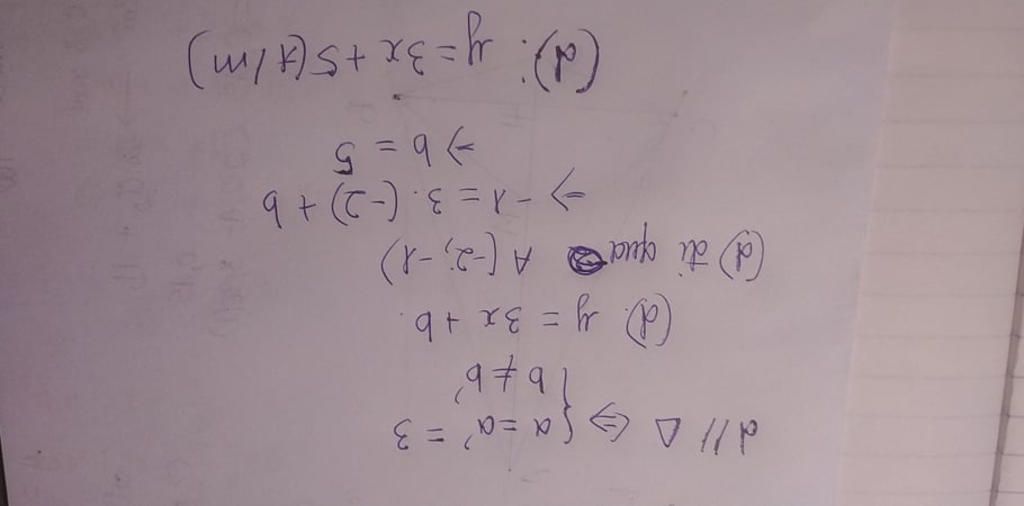 d // Δ ⇔ { a = a' = 3
{ b ≠ b'
(d): y = 3x + b.
(d) đi qua A (-2; -1)
⇒ -1 = 3. (-2) + b
⇒ b = 5
(d): y = 3x + 5 (t/m)